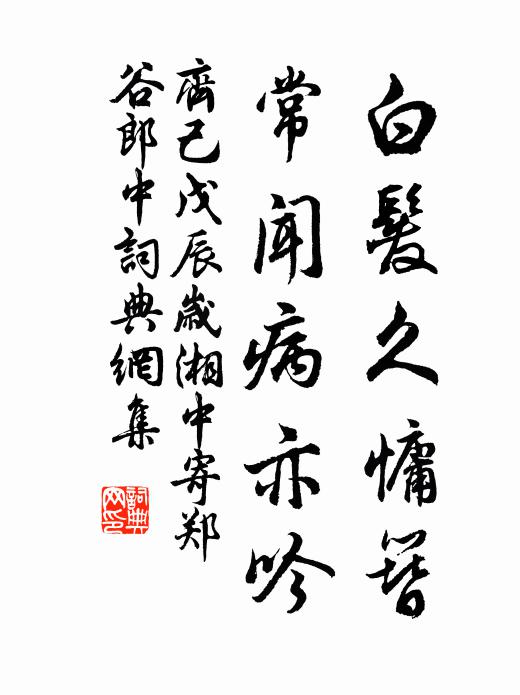 白髮久慵簪
常聞病亦吟
齊己戊辰歲湘中寄郑
谷郎中詞典網集
詞典
网印